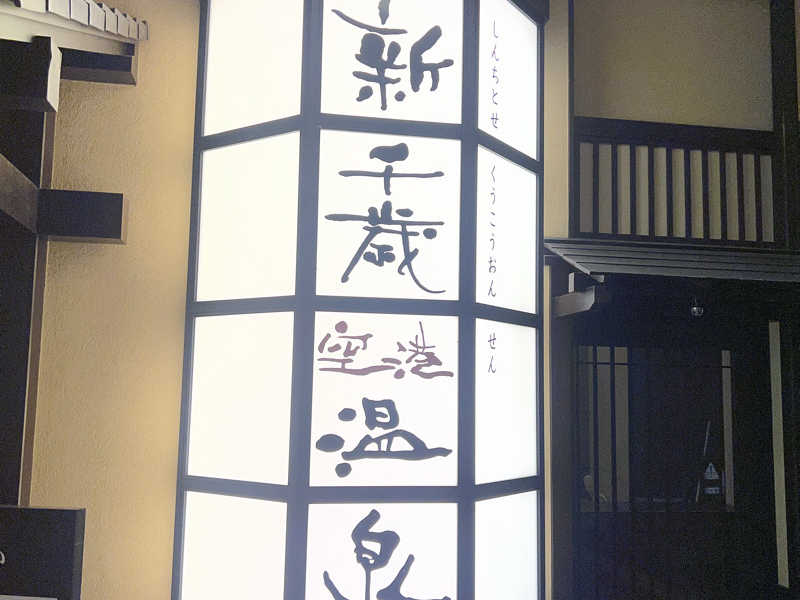 新千歳
空港
温泉
しんちとせ くうこうおんせん